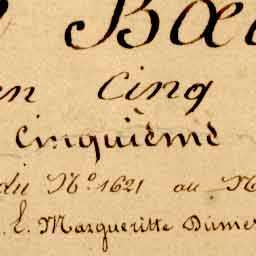 Bœ
en Cinq
cinquième
du Nº 1621 au N
E. Margueritte Dumer